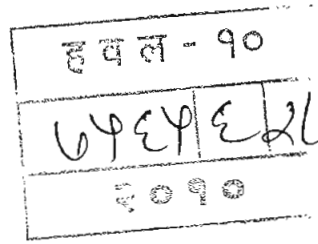 हवल - १०
७५६५ ६
२०१०